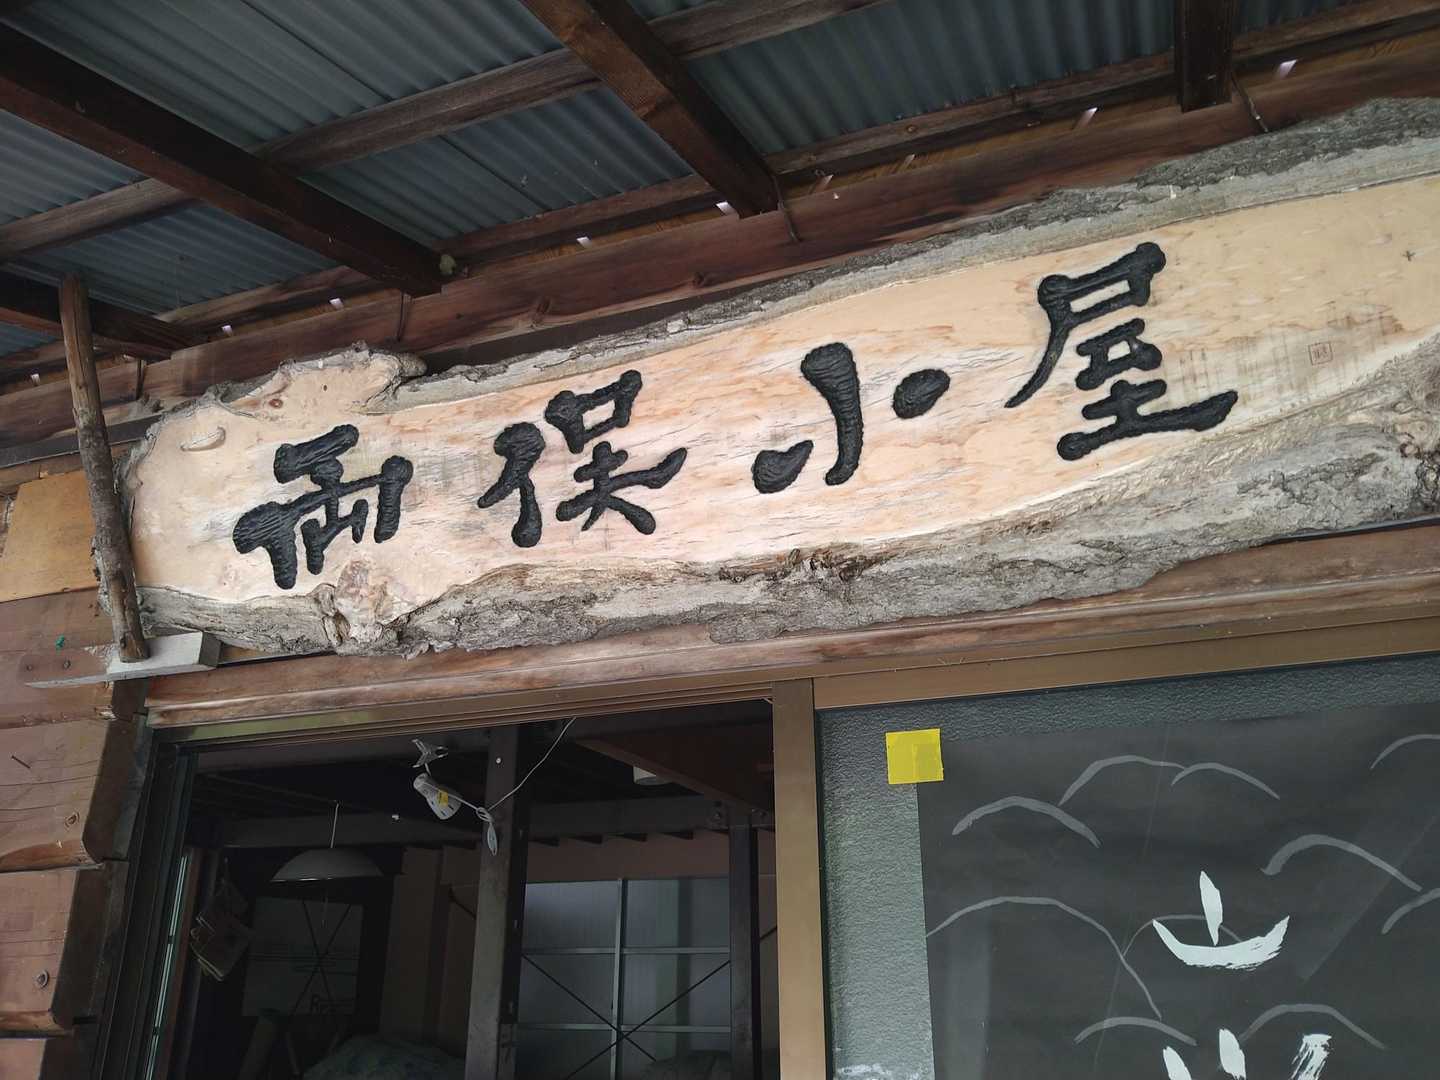 両俣小屋
山